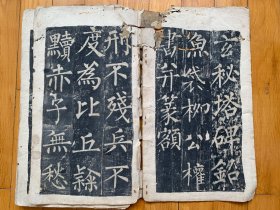 玄秘塔碑銘
魚袋柳公權
書并篆額
刑不殘兵不
度為比丘隸
黷赤子無愁